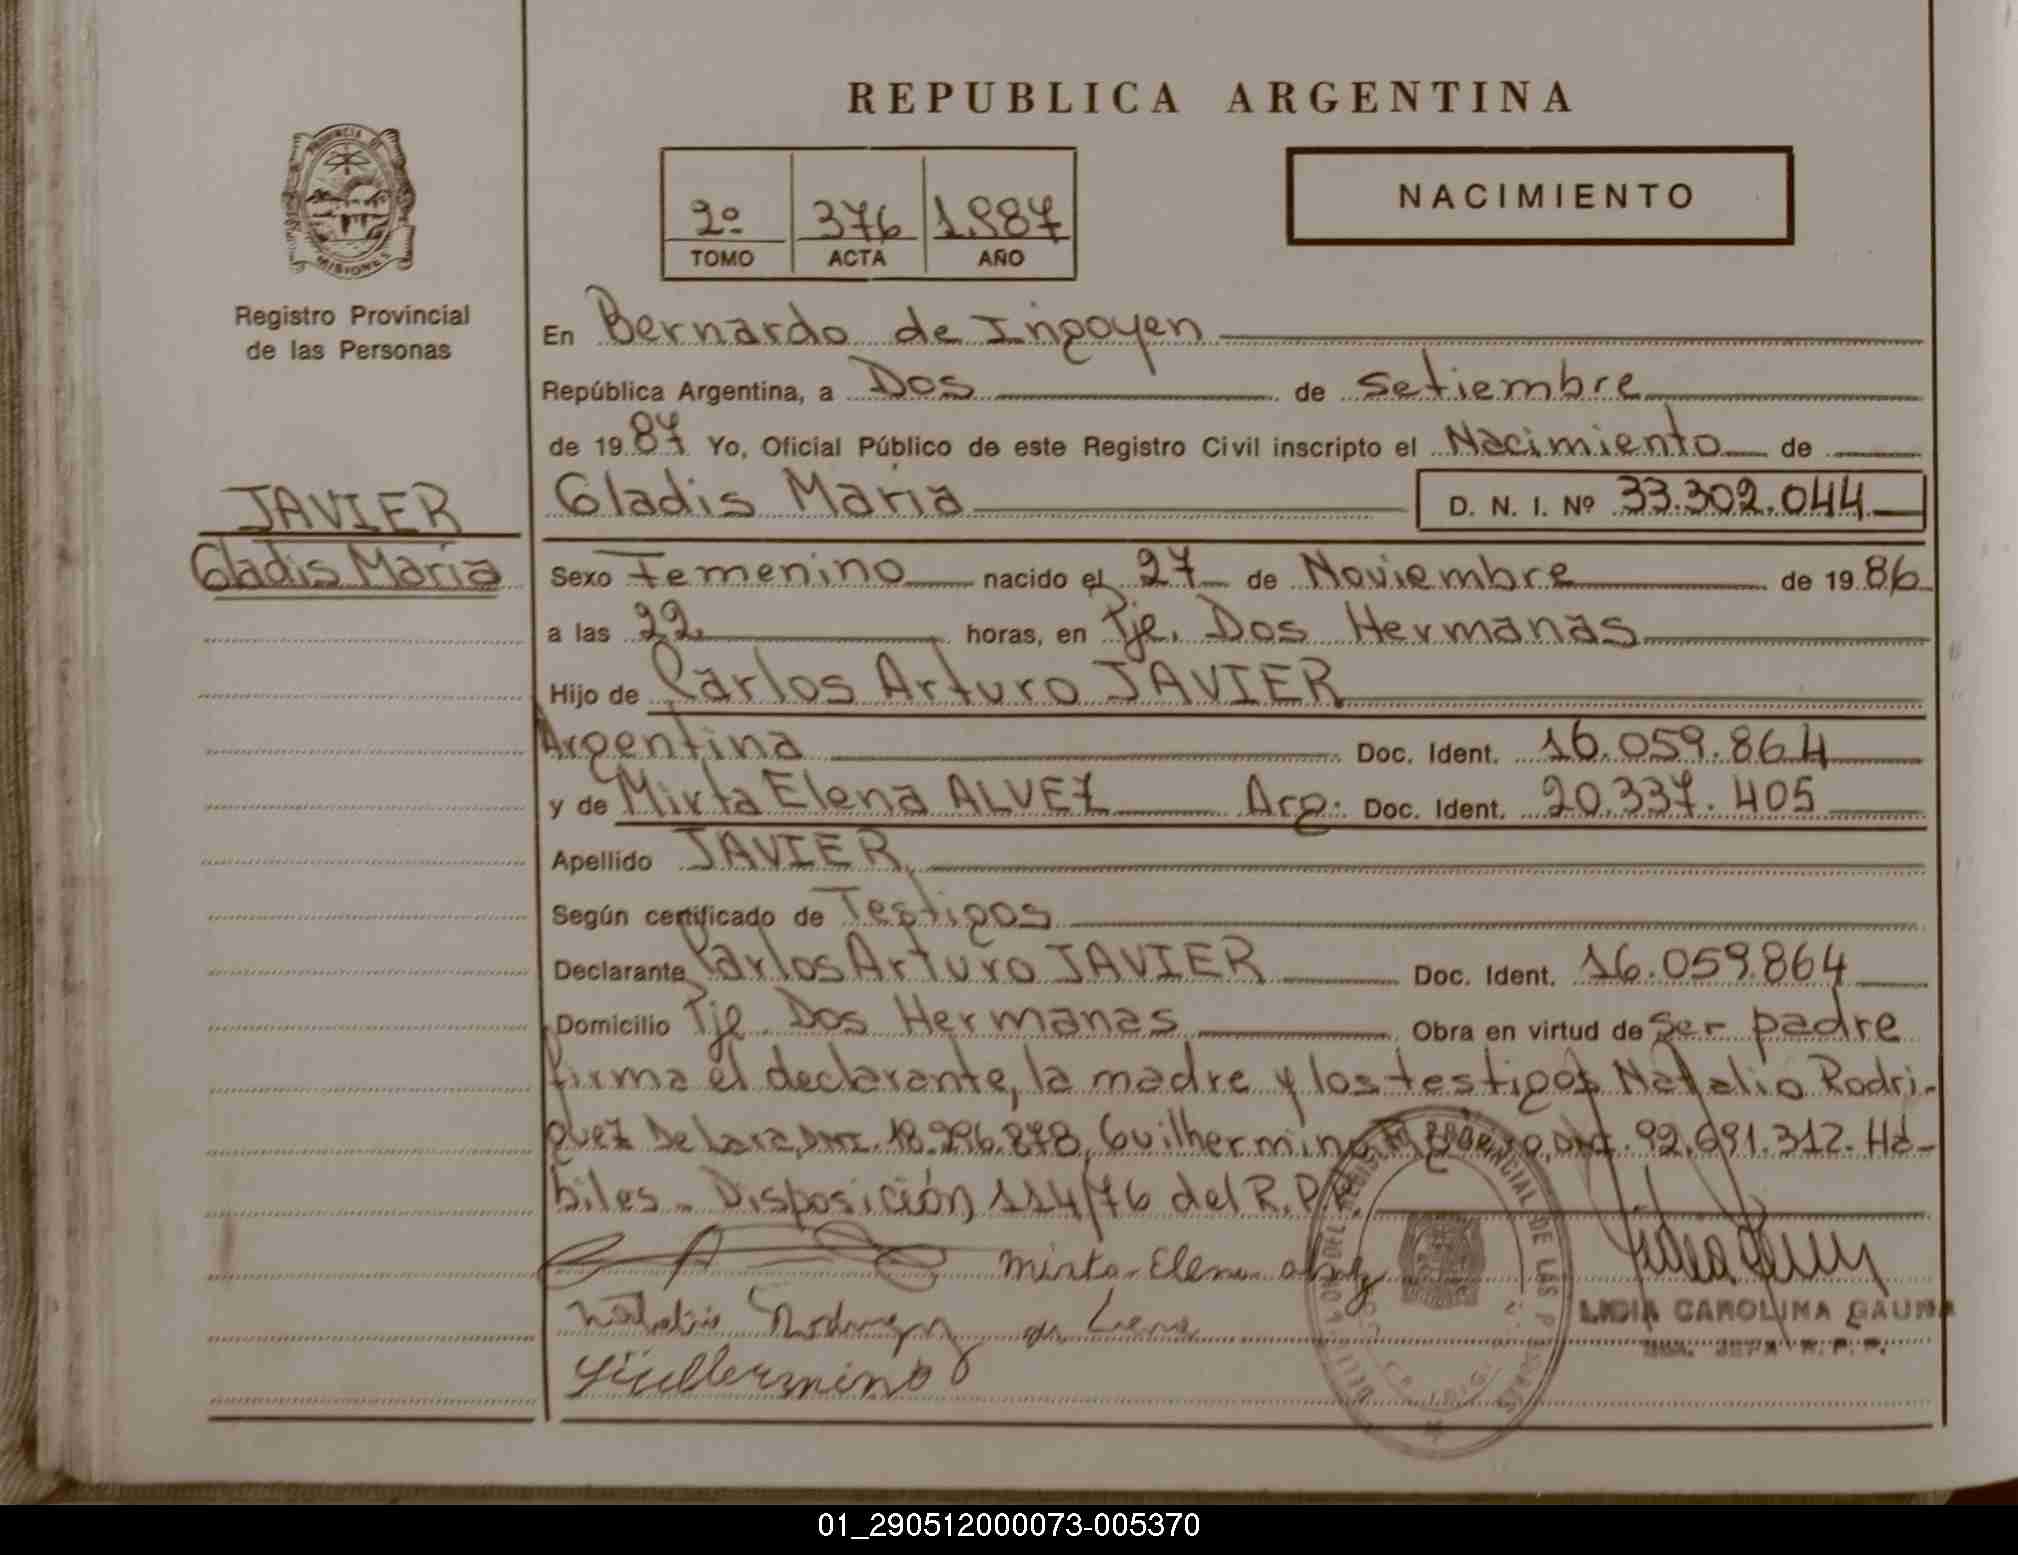 REPUBLICA ARGENTINA
NACIMIENTO
2º 376 1.987
TOMO ACTA AÑO
PROVINCIA DE MISIONES
Registro Provincial
de las Personas
JAVIER
Gladis Maria
En Bernardo de Irigoyen
República Argentina, a Dos de Setiembre
de 1987 Yo, Oficial Público de este Registro Civil inscripto el Nacimiento de
Gladis Maria D. N. I. Nº 33.302.044
Sexo Femenino nacido el 27 de Noviembre de 1986
a las 22 horas, en Pje. Dos Hermanas
Hijo de Carlos Arturo JAVIER
Argentina Doc. Ident. 16.059.864
y de Mirta Elena ALVEZ Arg. Doc. Ident. 20.337.405
Apellido JAVIER
Según certificado de Testigos
Declarante Carlos Arturo JAVIER Doc. Ident. 16.059.864
Domicilio Pje Dos Hermanas Obra en virtud de Ser padre
firma el declarante, la madre y los testigos Natalio Rodri-
guez De Lara, DNI. 18.296.878, Guilhermino DNI. 92.691.312. Há-
biles - Disposición 114/76 del R.P.P.
Mirta Elena
Natalio Rodriguez de Lara
Guillermino
LIGIA CAROLINA GAUNA
R. P. P.
DEL REGISTRO PROVINCIAL DE LAS PERSONAS
01_290512000073-005370